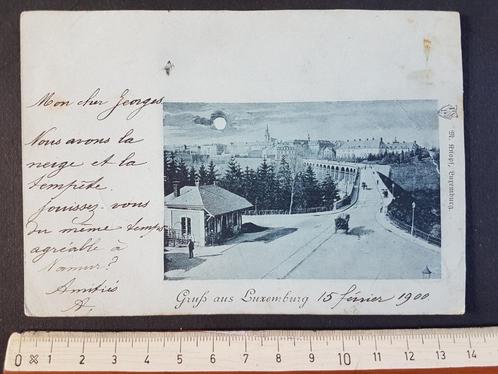 Mon cher Georges
Nous avons la
neige et la
tempête.
Jouissez-vous
du même temps
agréable à
Namur?
Amitiés
A.
Gruß aus Luxemburg 15 février 1900
Luxemburg.
0 1 2 3 4 5 6 7 8 9 10 11 12 13 14